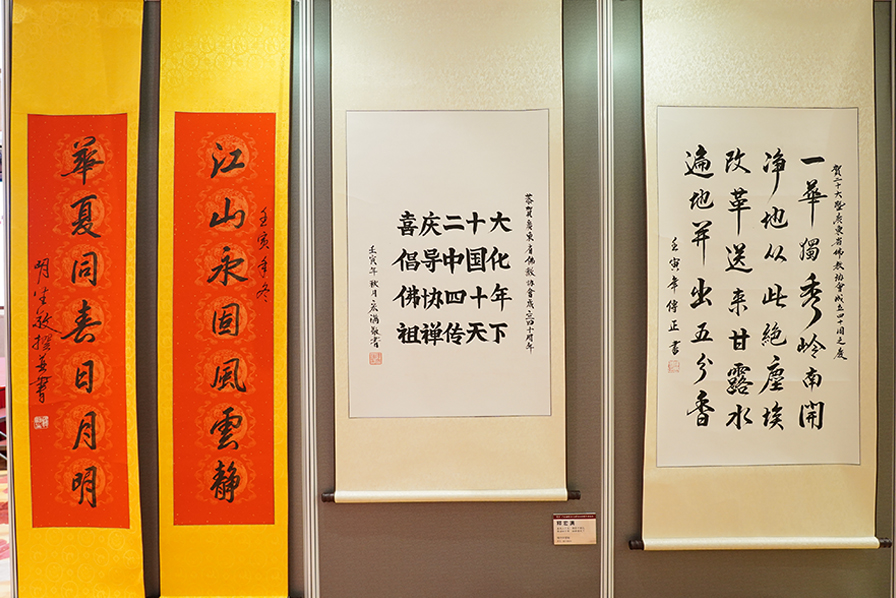 壬寅年冬
江山永固風雲静
華夏同春日月明
明生敬撰并書
恭賀廣東省佛教協會成立四十周年
喜庆二十大
倡导中国化
佛协四十年
祖禅传天下
壬寅年秋月宏满敬書
释宏满
賀二十大暨廣東省佛教協會成立四十周之慶
一華獨秀岭南開
净地从此絶塵埃
改革送来甘露水
遍地并出五分香
壬寅年傳正書